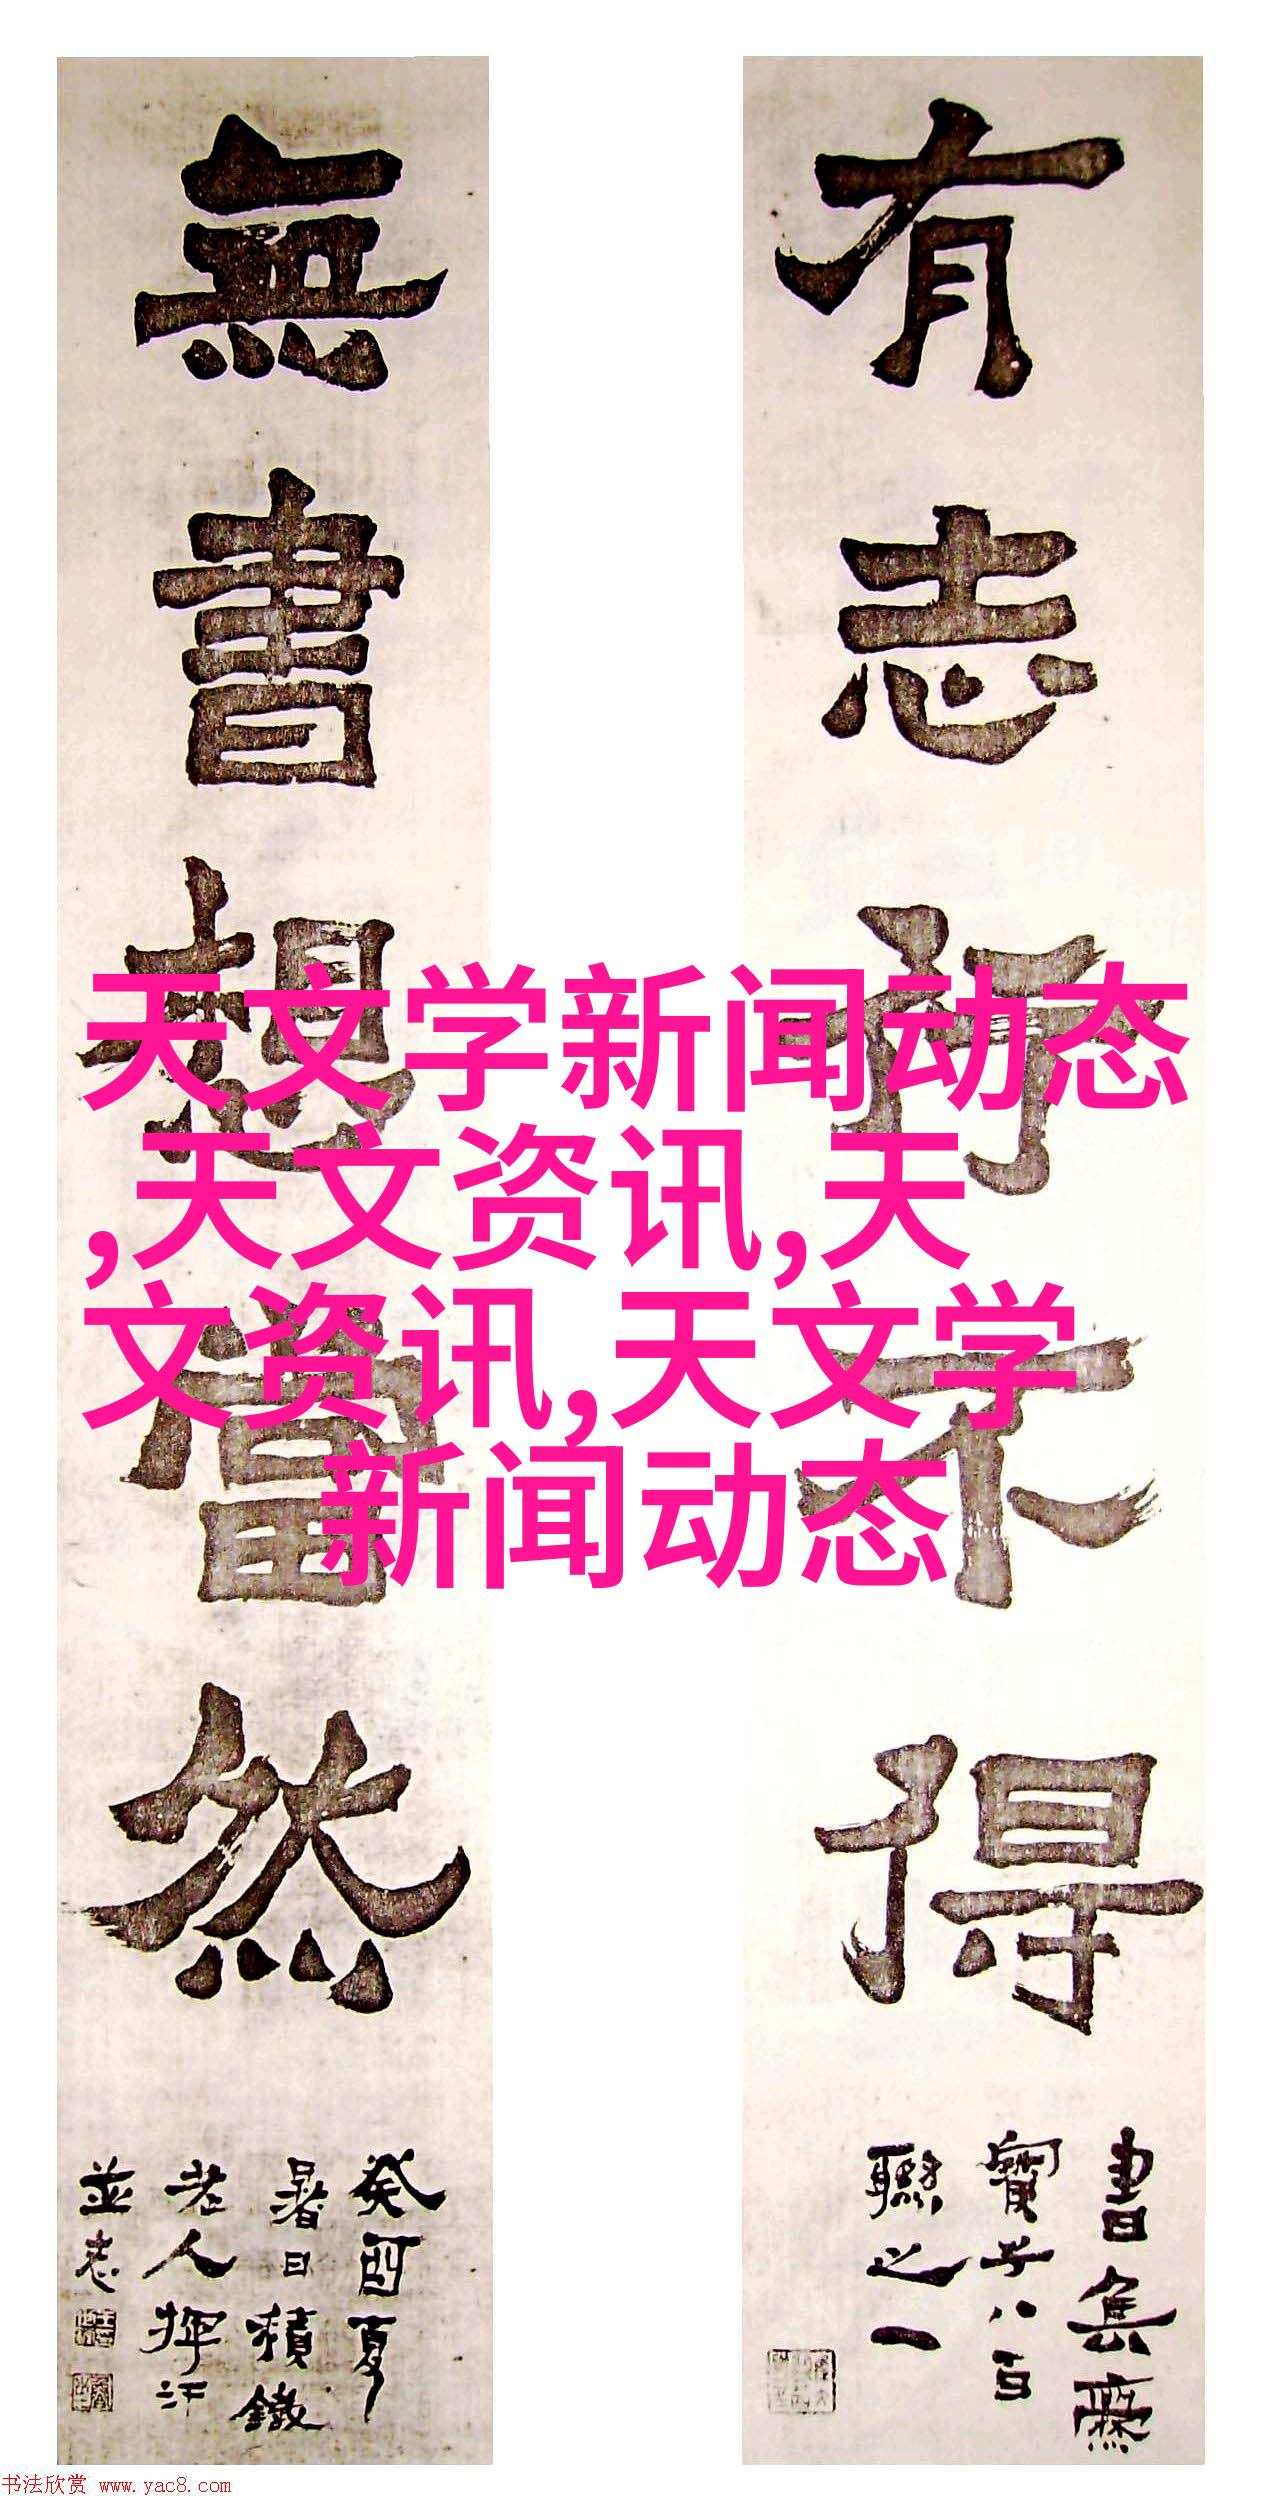 有志行不得
書集齋
寳子八百
聯之一
無書想當然
癸酉夏
暑日積鐵
老人揮汗
並志
天文学新闻动态
,天文资讯,天
文资讯,天文学
新闻动态
书法欣赏 www.yac8.com